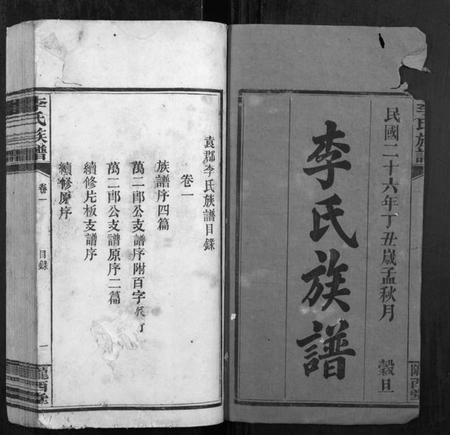 李氏族譜
民國二十六年丁丑歲孟秋月
穀旦
李氏族譜
隴西堂
袁郡李氏族譜目錄
卷一
族譜序四篇
萬二郎公支譜序附百字
萬二郎公支譜原序二篇
續修片板支譜序
續修原序
李氏族譜
卷一
目錄
一
隴西堂